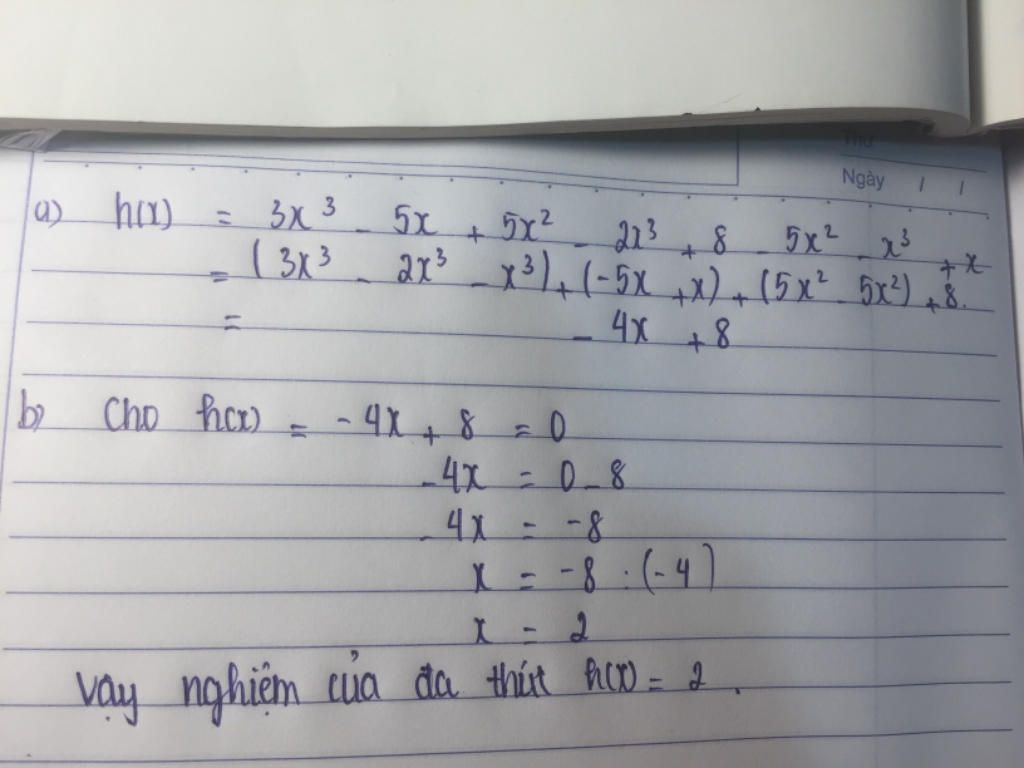 Thứ
Ngày / /
a) h(x) = 3x³ - 5x + 5x² - 2x³ + 8 - 5x² - x³ + x
= (3x³ - 2x³ - x³) + (-5x + x) + (5x² - 5x²) + 8.
= - 4x + 8
b) Cho h(x) = - 4x + 8 = 0
- 4x = 0 - 8
- 4x = -8
x = -8 : (-4)
x = 2
Vạy nghiệm của đa thức h(x) = 2.